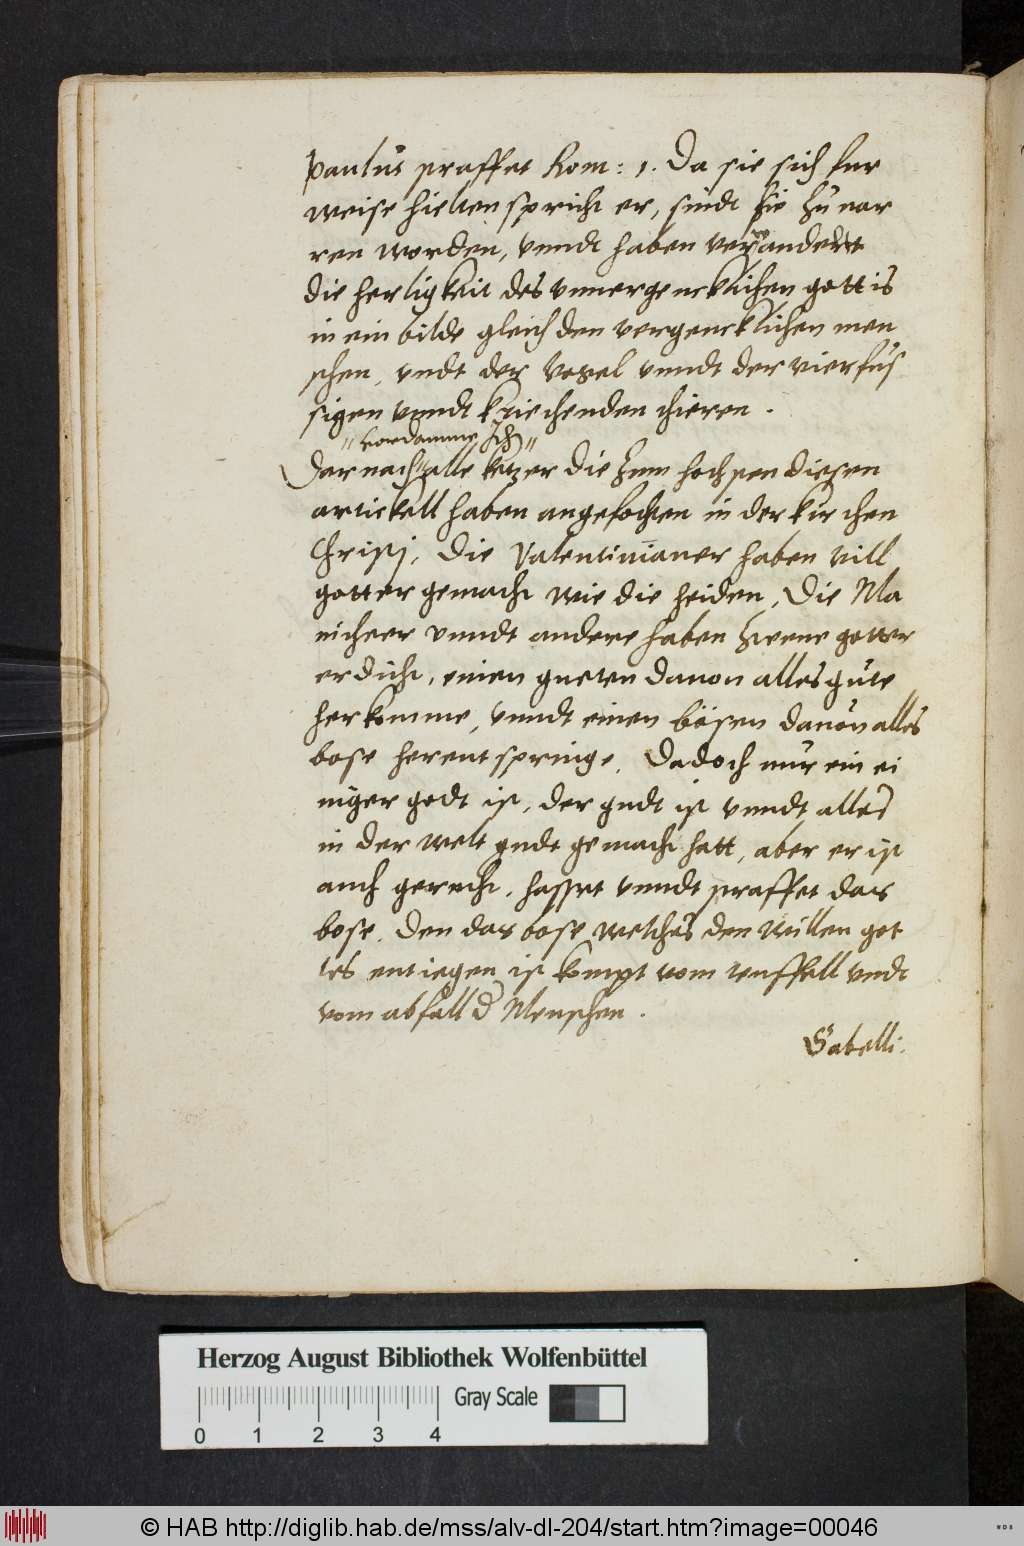 Paulus straffet Rom: 1. Da sie sich fur
weise hielten spricht er, sindt sie zu nar
ren worden, vnndt haben verwandelt
die herligkeit des vnuergencklichen gottis
in ein bilde gleich den vergencklichen men
schen, vndt der vogel vnndt der vierfus
sigen vnndt kriechenden thieren.
" vordamme Ich "
Darnach alle ketzer die zum hochsten diesen
artickell haben angefochten in der kirchen
Christi, Die Valentinianer haben vill
gotter gemacht wie die heiden, Die Ma
nicheer vnndt andere haben zwene gotter
erdicht, einen gueten dauon alles gute
herkomme, vnndt einen bösen dauon alles
bose herentspringe. Da doch nur ein ei
niger godt ist, der gudt ist vnndt alles
in der welt gudt gemacht hatt, aber er ist
auch gerecht, hasset vnndt straffet das
bose. Den das bose welches den willen got
tes entiegen ist kompt vom teuffell vndt
vom abfall d Menschen.
Sabelli.
Herzog August Bibliothek Wolfenbüttel
Gray Scale
0 1 2 3 4
© HAB http://diglib.hab.de/mss/alv-dl-204/start.htm?image=00046